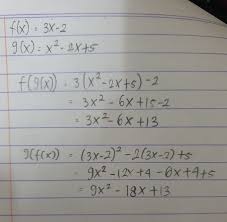 f(x) = 3x-2
g(x) = x²-2x+5
f(g(x)) = 3(x²-2x+5)-2
= 3x²-6x+15-2
= 3x²-6x+13
g(f(x)) = (3x-2)²-2(3x-2)+5
= 9x²-12x+4-6x+4+5
= 9x²-18x+13